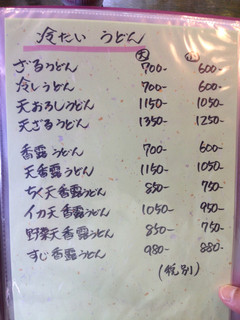 冷たい うどん
大 小
ざるうどん 700- 600-
冷しうどん 700- 600-
天おろしうどん 1150- 1050-
天ざるうどん 1350- 1250-
香露うどん 700- 600-
天香露うどん 1150- 1050-
ちく天香露うどん 850- 750-
イカ天香露うどん 1050- 950-
野菜天香露うどん 850- 750-
すじ香露うどん 980- 880-
(税別)